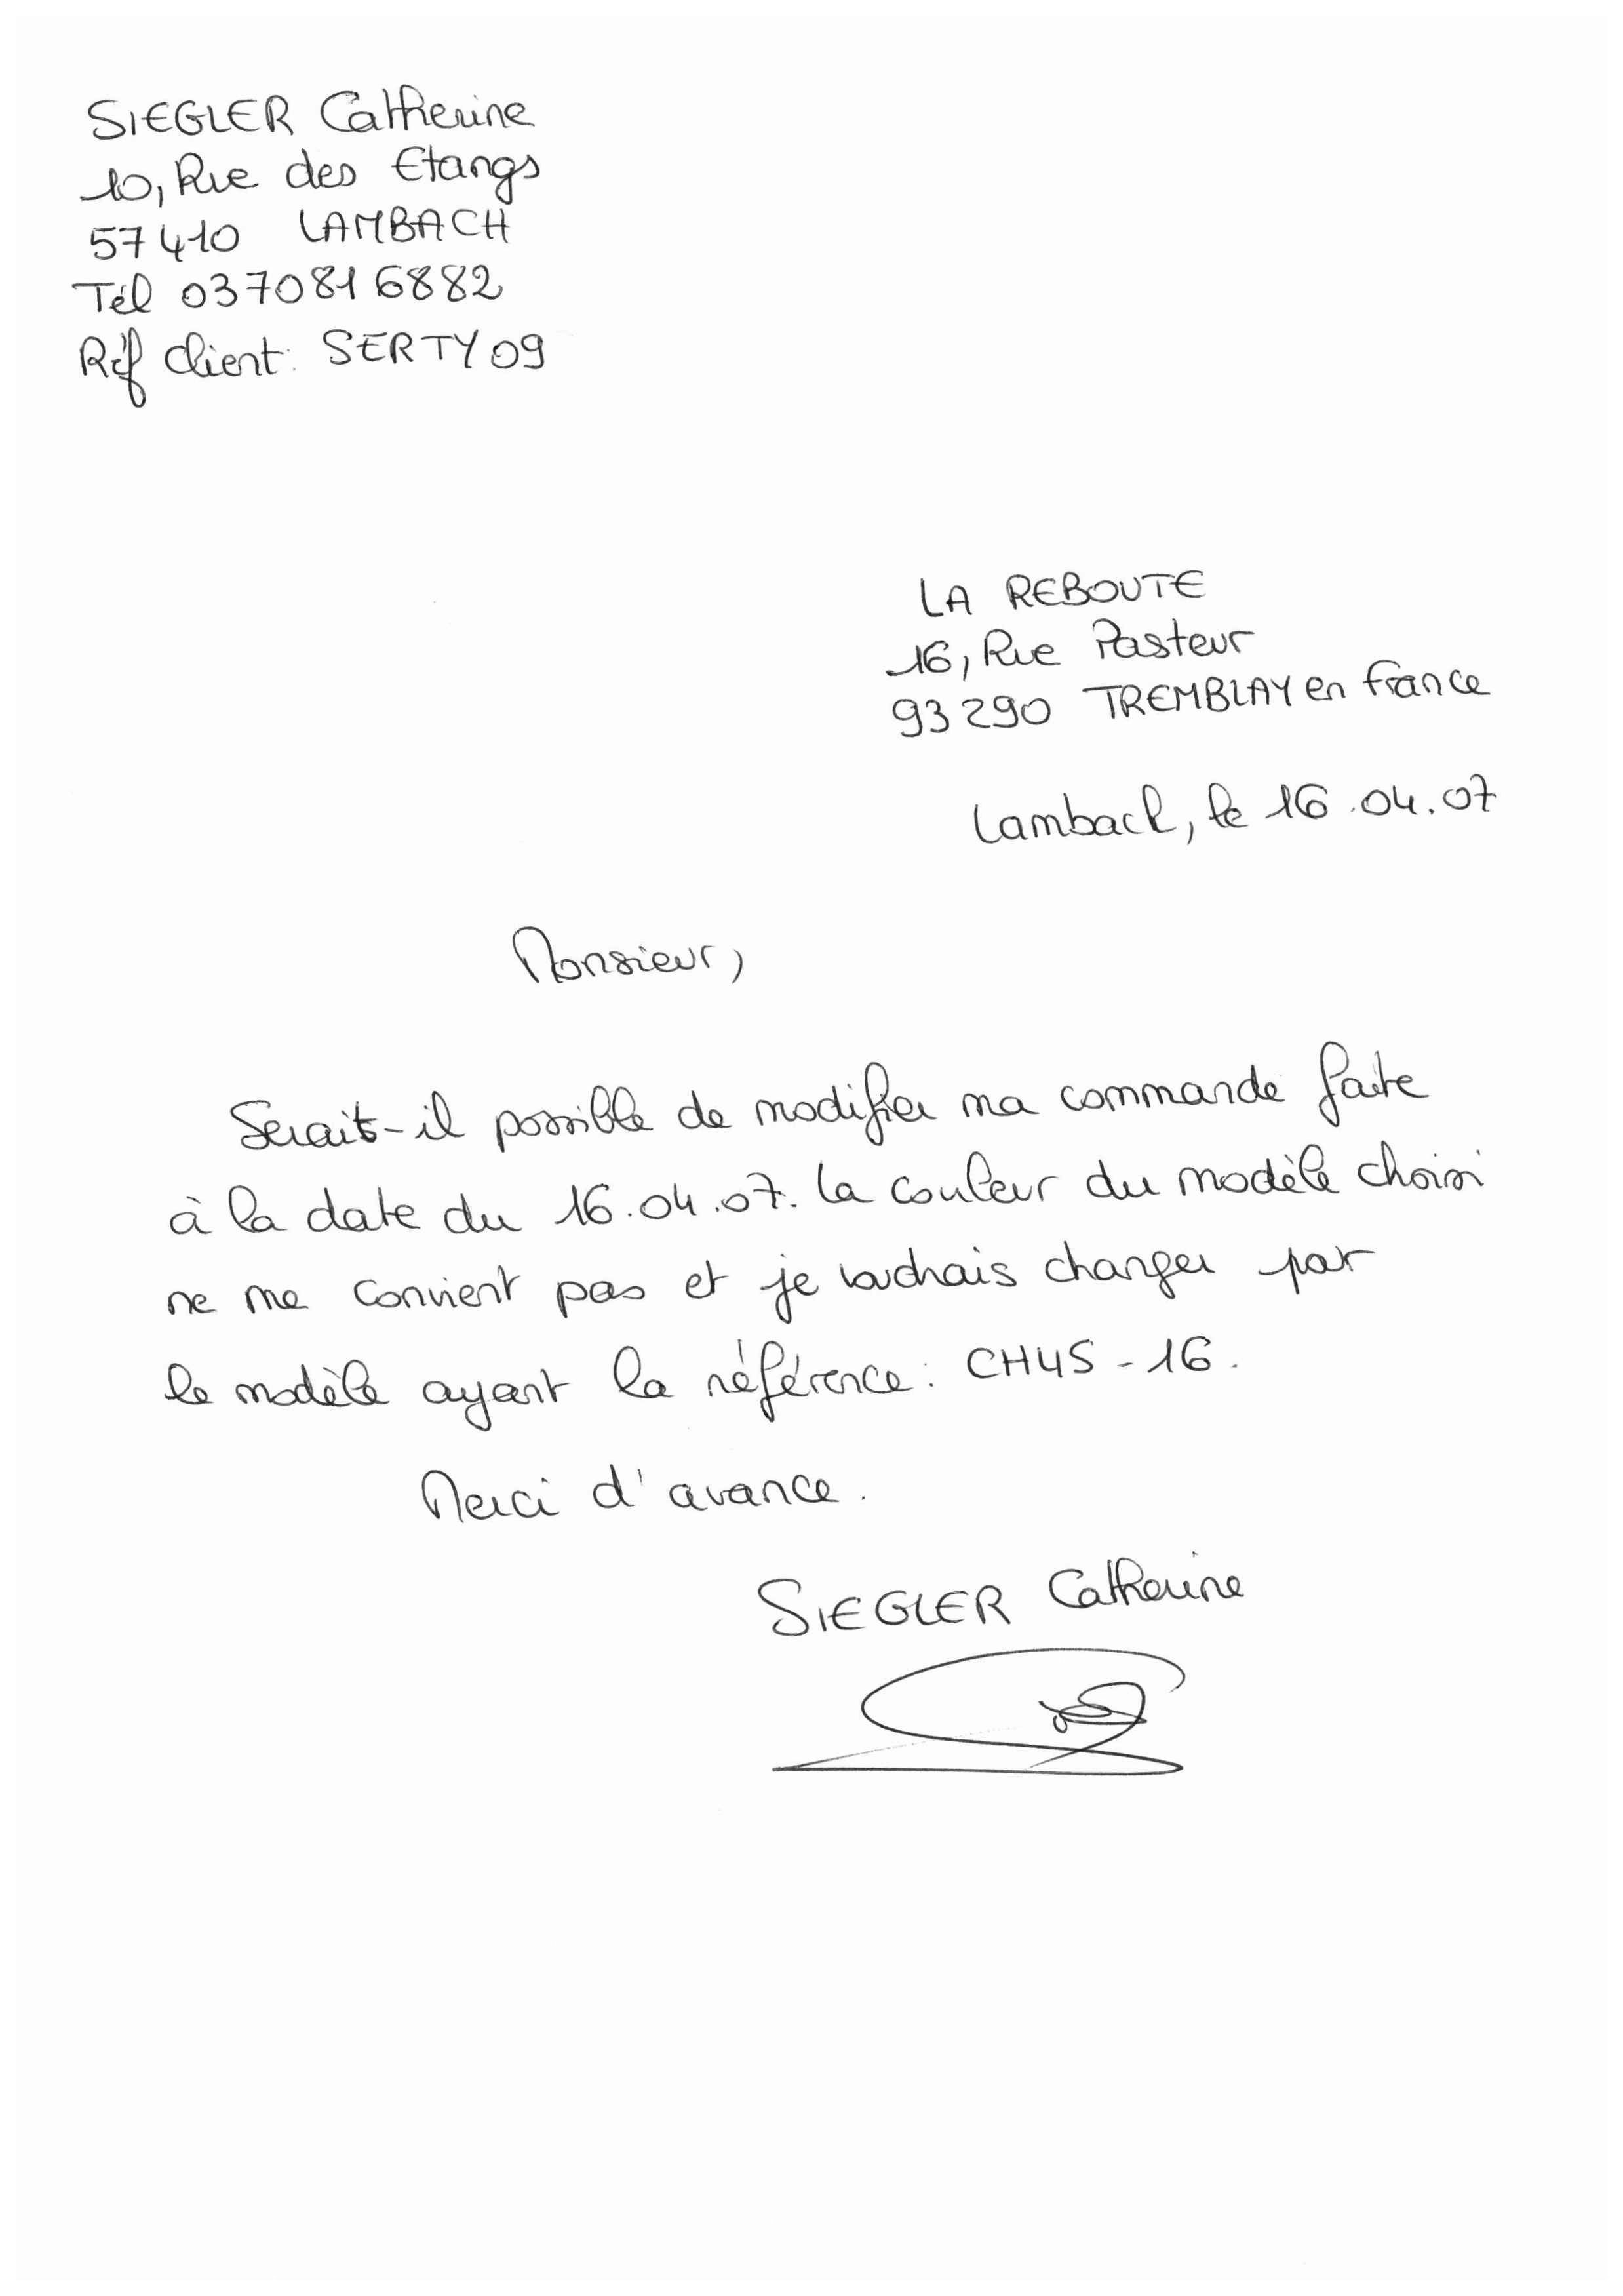 SIEGLER Catherine
10, Rue des Etangs
57410 LAMBACH
Tél 0370816882
Réf client: SERTY09
LA REBOUTE
16, Rue Pasteur
93290 TREMBLAY en france
Lambach, le 16.04.07
Monsieur,
Serait-il possible de modifier ma commande faite
à la date du 16.04.07. La couleur du modèle choisi
ne me convient pas et je voudrais changer par
le modèle ayant la référence: CH45-16.
Merci d'avance.
SIEGLER Catherine